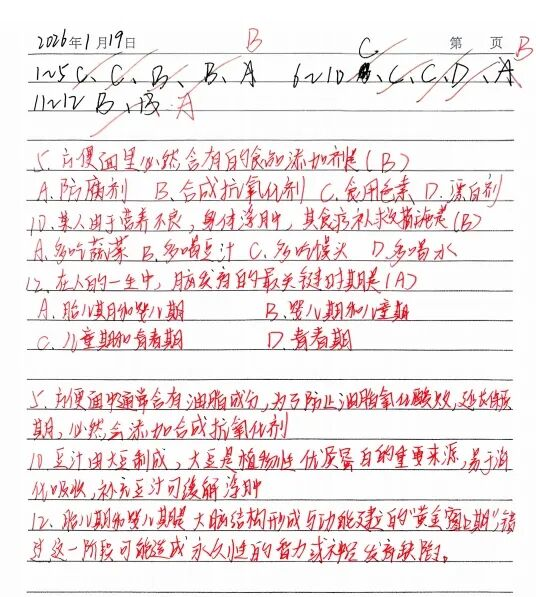 2026年1月19日 B 第 页
1~5 C、C、B、B、A 6~10 C、C、C、D、A B
11~12 B、B A
5. 方便面里必然含有的食品添加剂是(B)
A.防腐剂 B.合成抗氧化剂 C.食用色素 D.漂白剂
10.某人由于营养不良,身体浮肿,其食疗补救措施是(B)
A.多吃蔬菜 B.多喝豆汁 C.多吃馒头 D.多喝水
12.在人的一生中,脑发育的最关键时期是(A)
A.胎儿期和婴儿期 B.婴儿期和儿童期
C.儿童期和青春期 D.青春期
5.方便面中通常含有油脂成分,为了防止油脂氧化酸败,延长保质
期,必然会添加合成抗氧化剂
10豆汁由大豆制成,大豆是植物性优质蛋白的重要来源,易于消
化吸收,补充豆汁可缓解浮肿
12.胎儿期和婴儿期是大脑结构形成与功能建立的"黄金窗口期",错
过这一阶段可能造成永久性的智力或神经发育缺陷。